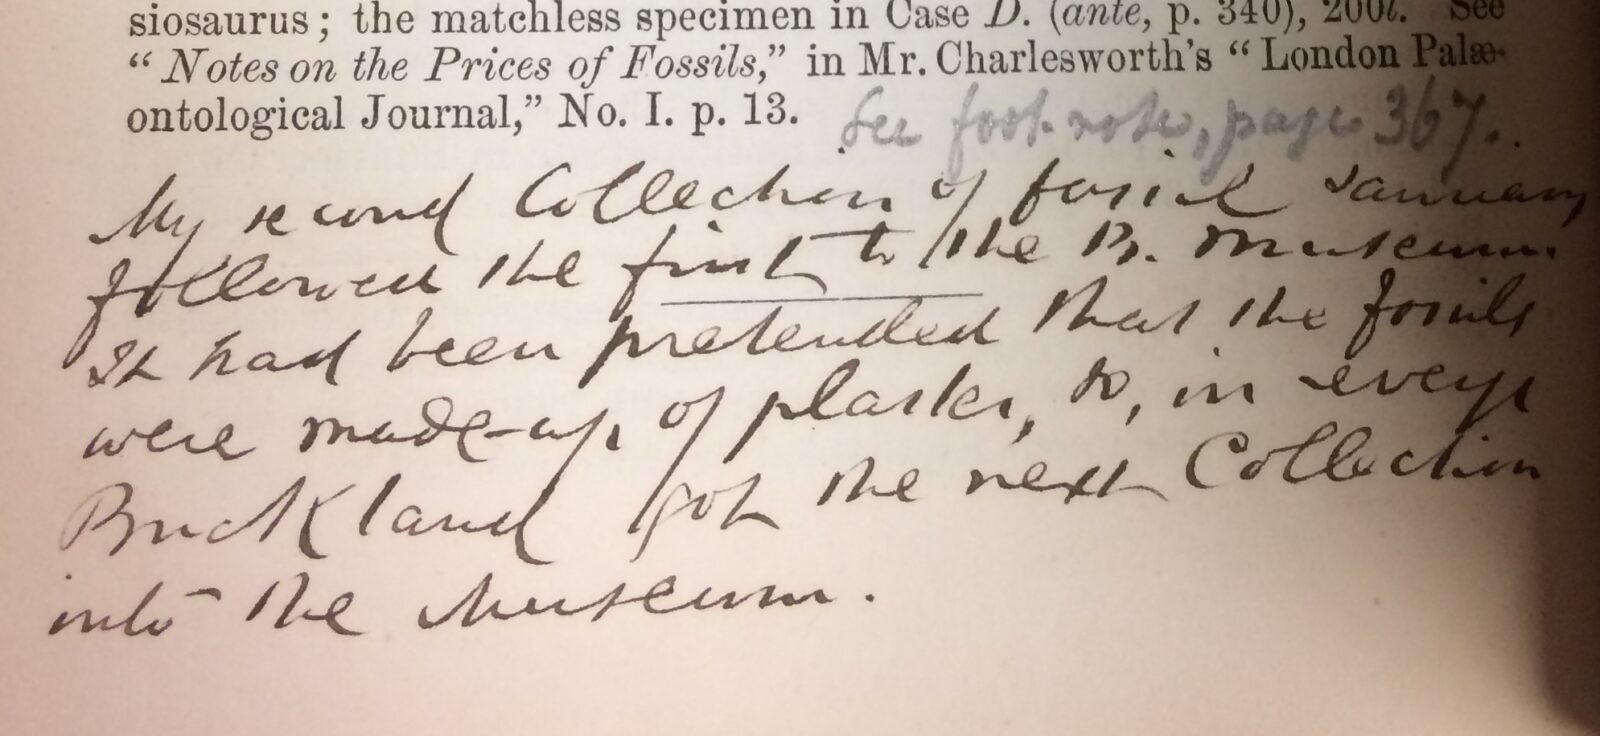 siosaurus; the matchless specimen in Case D. (ante, p. 340), 200l. See
“Notes on the Prices of Fossils,” in Mr. Charlesworth's “London Palæ-
ontological Journal,” No. I. p. 13.
See foot-note, page 367.
My second Collection of fossil
followed the first to the Br. Museum.
It had been pretended that the fossils
were made-up of plaster, so, in
Buckland got the next Collection
into the Museum.